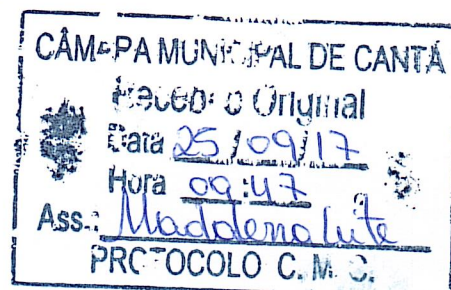 CÂMARA MUNICIPAL DE CANTÁ
Recebi o Original
Data 25/09/17
Hora 09:47
Ass.: Maddalena Lute
PROTOCOLO C. M. C.